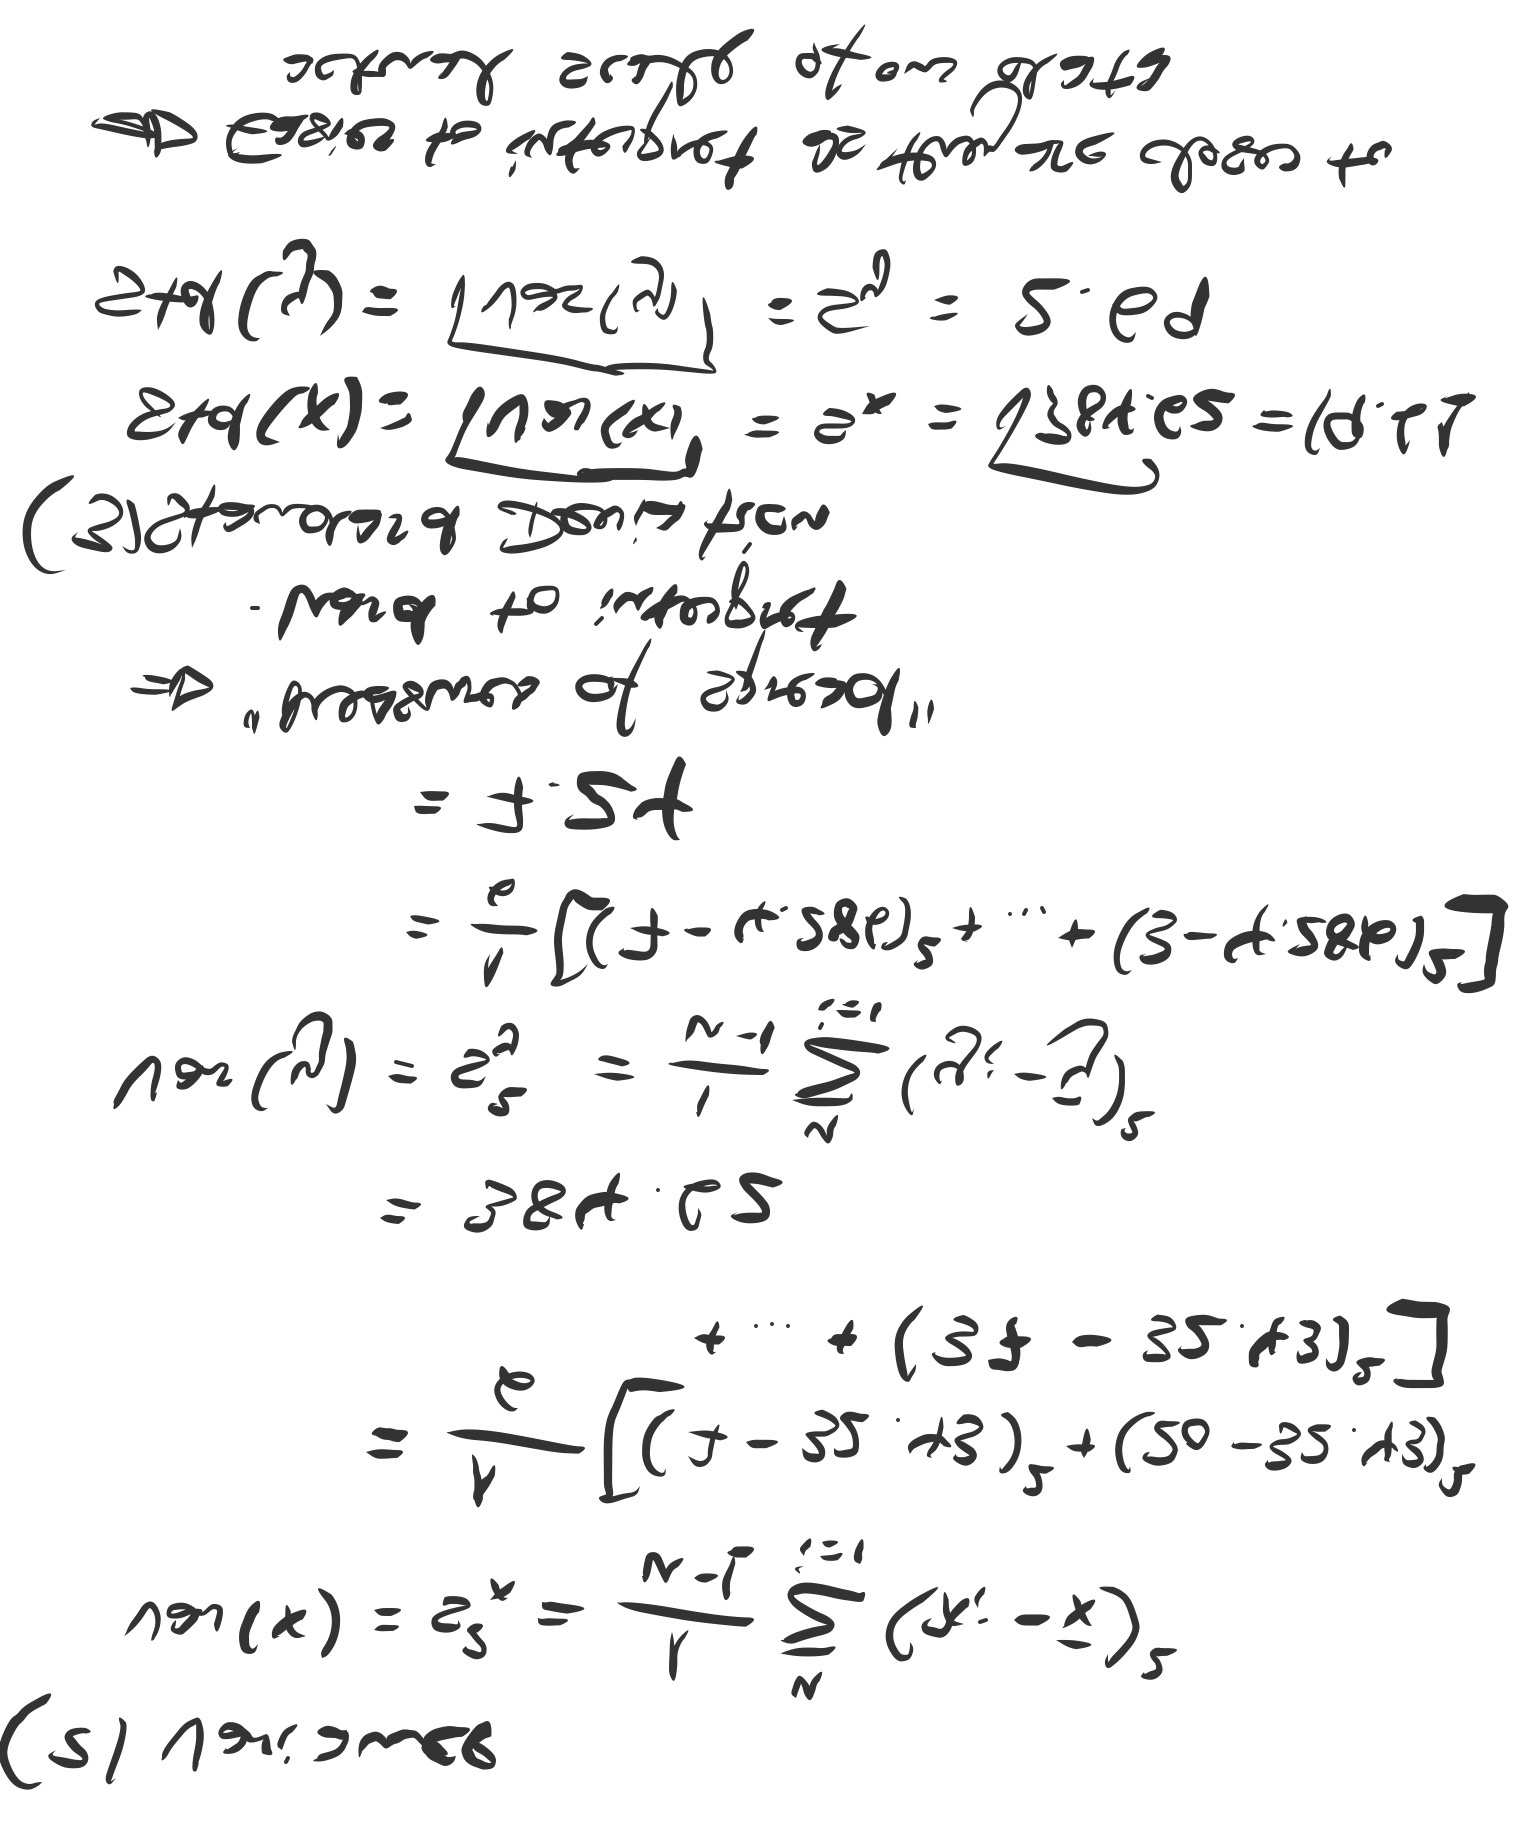 (2) Variance
Var(x) = s²ₓ = 1/(n-1) Σ_{i=1}^{n} (xᵢ - x̄)²
= 1/6 [(7 - 32.43)² + (20 - 32.43)²
+ ... + (37 - 32.43)²]
= 384.62
Var(y) = s_y² = 1/(n-1) Σ_{i=1}^{n} (yᵢ - ȳ)²
= 1/6 [(7 - 4.286)² + ... + (3 - 4.286)²]
= 7.24
⇒ "Measures of spread"
- hard to interpret
(3) Standard Deviation
std(x) = √Var(x) = sₓ = √384.62 = 19.61
std(y) = √Var(y) = s_y = 2.69
⇒ Easier to interpret as they are closer to
actual scale of our data